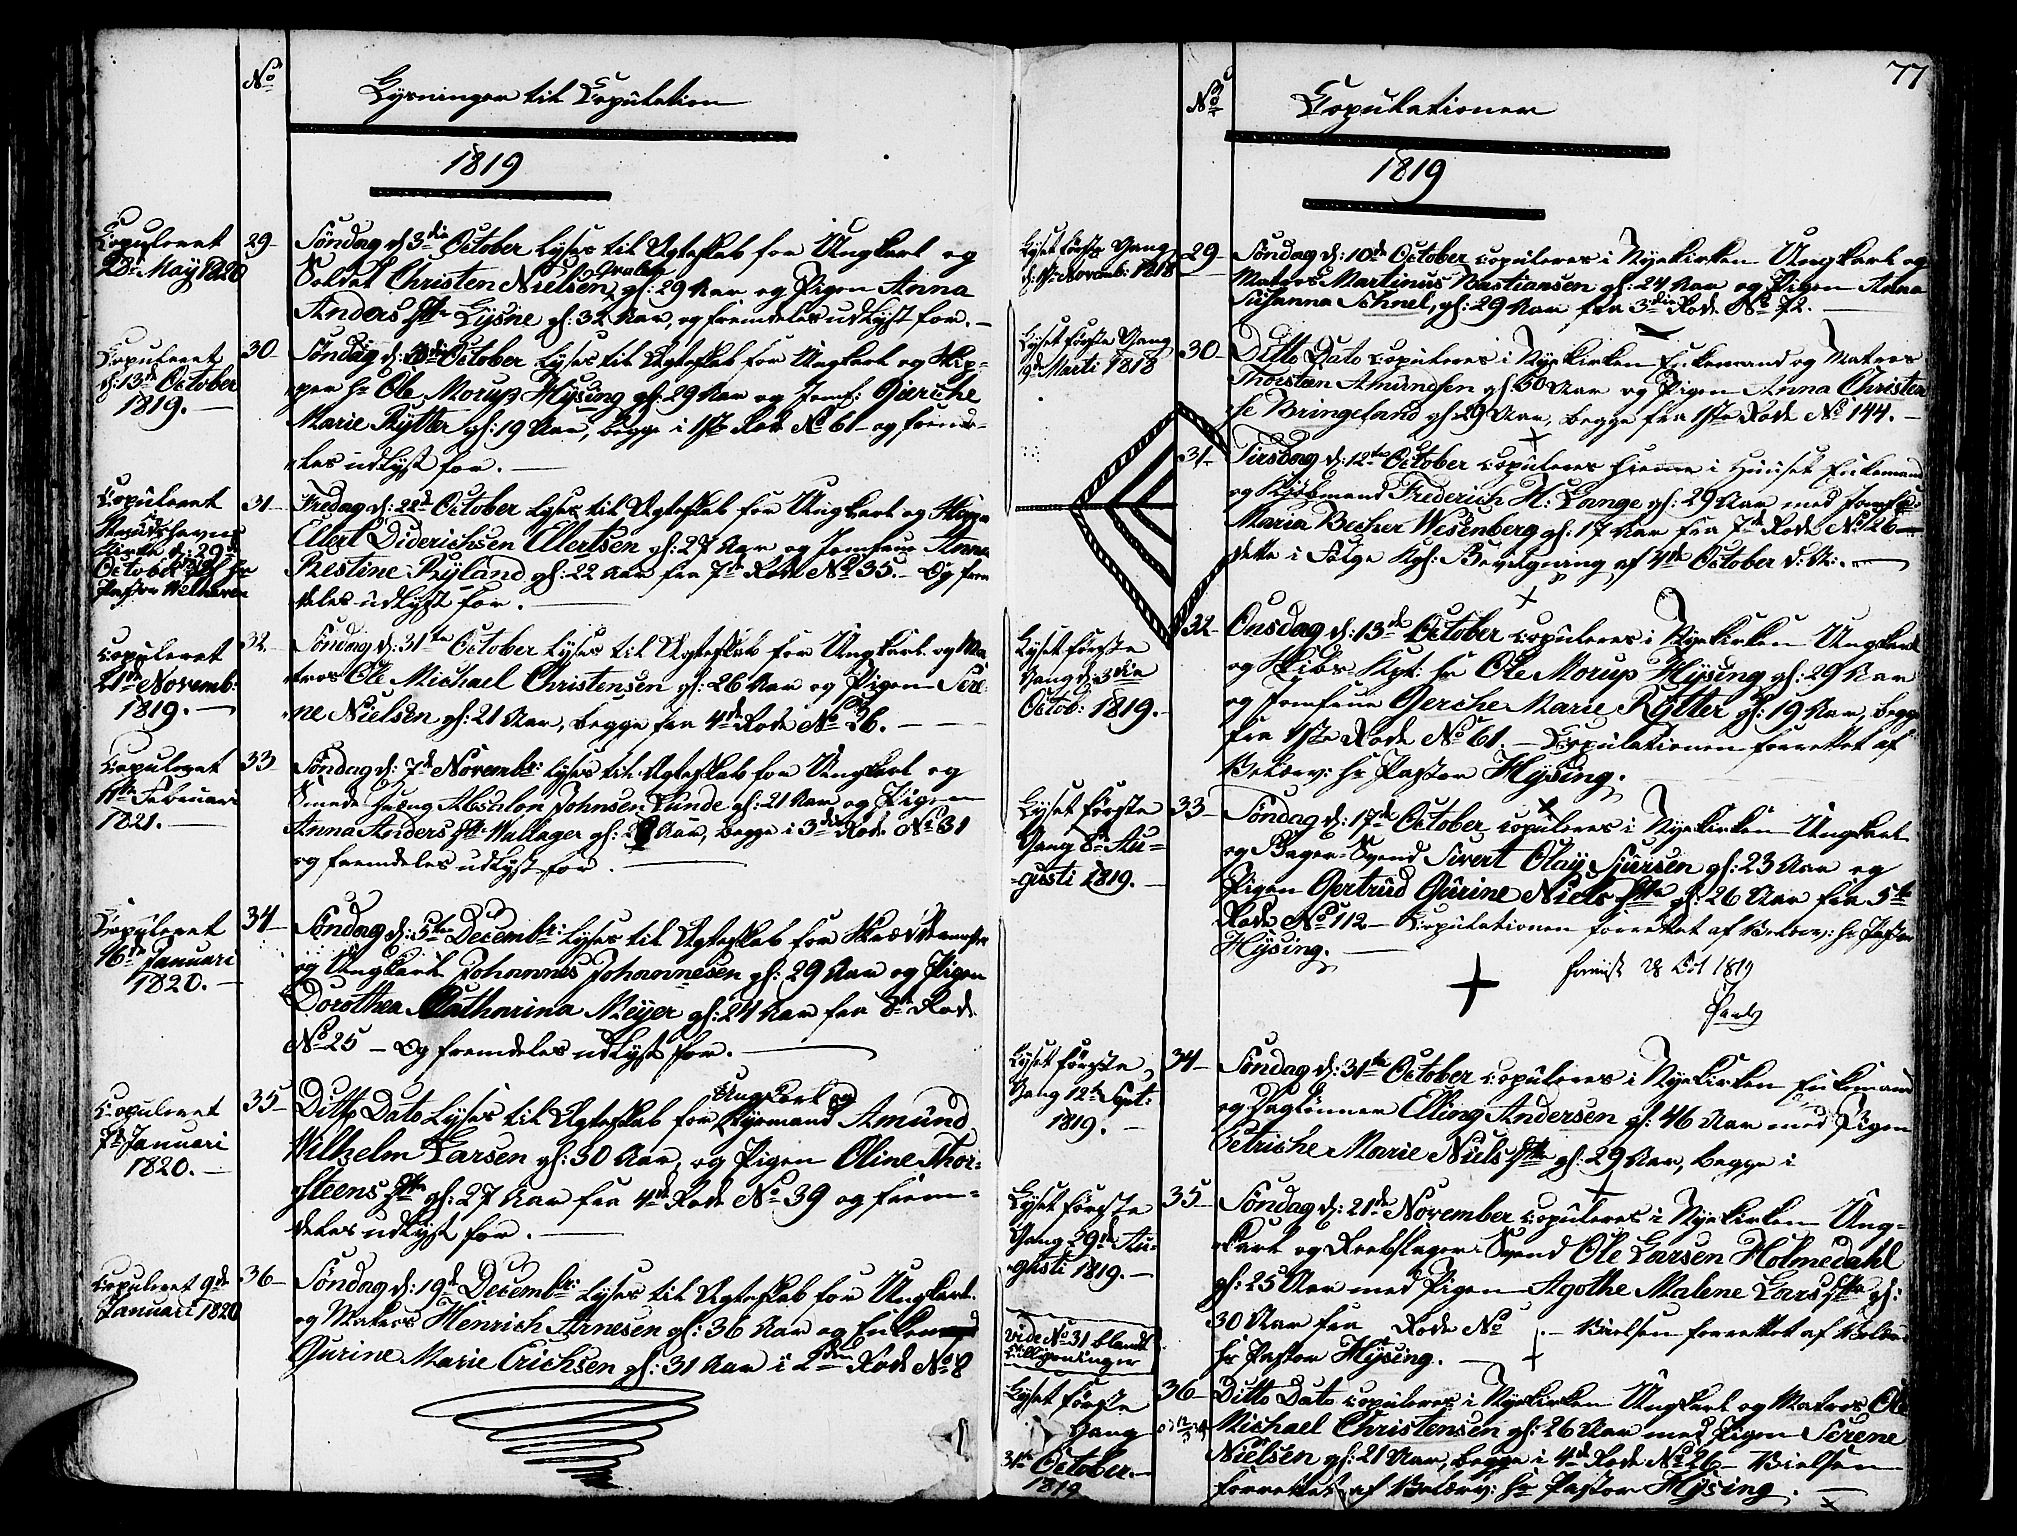 No
Lysninger til Copulation
1819
Copuleret
28de May 1820
29-
Søndag d: 3die October lyses til Ægteskab for Ungkarl og
Soldat Christen Nielsen gl: 29 Aar og Pigen Anna
Anders Dtr Lysne gl: 32 Aar, og fremdeles udlyst for. -
Copuleret
d: 13de October
1819. -
30-
Søndag d: 3die October lyses til Ægteskab for Ungkarl og Skip-
per Hr Ole Morup Hysing gl: 29 Aar og Jomf: Gjerche
Marie Rytter gl: 19 Aar, begge i 1ste Rode No 61 - og frem-
deles udlyst for. -
Copuleret
Kirke d: 29de
October
Pastor Welhaven
31-
Fredag d: 22de October lyses til Ægteskab for Ungkarl og
Ellert Diderichsen Ellertsen gl: 27 Aar og Jomfrue Anna
Restine Ryland gl: 22 Aar fra 7de Rode No 35. - Og frem
deles udlyst for. -
Copuleret
21de Novemb:
1819. -
32-
Søndag d: 31te October lyses til Ægteskab for Ungkarl og Ma-
tros Ole Michael Christensen gl: 26 Aar og Pigen Sere-
ne Nielsen gl: 21 Aar, begge fra 4de Rode No 26. -
Copuleret
11te Februari
1821. -
33
Søndag d: 7de Novembr: lyses til Ægteskab for Ungkarl og
Smede Absalon Johnsen Lunde gl: 21 Aar og Pigen
Anna Anders Dtr Wallager gl: Aar, begge i 3die Rode No 31
og fremdeles udlyst for. -
Copuleret
16de Januari
1820. -
34-
Søndag d: 5te Decembr: lyses til Ægteskab for
og Ungkarl Johannes Johannesen gl: 29 Aar og Pigen
Dorothea Catharina Meyer gl: 24 Aar fra 8de Rode
No 25 - Og fremdeles udlyst for. -
Copuleret
7de Januari
1820. -
35-
Ungkarl og
Ditto Dato lyses til Ægteskab for Styrmand Amund
Wilhelm Larsen gl: 30 Aar, og Pigen Oline Thor-
steens Dtr gl: 27 Aar fra 4de Rode No 39 og frem-
deles udlyst for. -
Copuleret 9de
Januari 1820
36-
Søndag d: 19de Decembr: lyses til Ægteskab for Ungkarl
og Matros Henrich Arnesen gl: 36 Aar og Enken
Gurine Marie Erichsen gl: 31 Aar i 2den Rode No 8
77
No
Copulationer
1819
Lyset første Gang
Novemb: 1818
29-
Søndag d: 10de October copuleres i Nyekirken Ungkarl og
Matros Martinus Bastiansen gl: 24 Aar og Pigen Anna
Susanna Schnel, gl: 29 Aar fra 3die Rode No 72. -
Lyset første Gang
9de Marti 1818
30-
Ditto Dato copuleres i Nyekirken Enkemand og Matros
Thorsten Amundsen gl: 50 Aar og Pigen Anna Christen
se Bringeland gl: 29 Aar, begge fra 1ste Rode No 144. -
31-
Tirsdag d: 12te October copuleres hjemme i Huuset Enkemand
og Kjøbmand Frederich H: Lange gl: 29 Aar med Jomfrue
Maria Becher Wesenberg gl: 17 Aar fra 7de Rode No 26 -
dette i Følge Kgl: Bevilgning af 4de October d: A: -
Lyset første
Gang d: 3die
Octob: 1819. -
32-
Onsdag d: 13de October copuleres i Nyekirken Ungkarl
og Skibs-Kpt: Hr Ole Morup Hysing gl: 29 Aar
og Jomfrue Gerche Marie Rytter gl: 19 Aar, begge
fra 1ste Rode No 61. - Copulationen forrettet af
Velærv: Hr Pastor Hysing.
Lyset første
Gang 8de Au-
gusti 1819. -
33-
Søndag d: 17de October copuleres i Nyekirken Ungkarl
og Bager-Svend Sivert Olay Sjursen gl: 23 Aar og
Pigen Gertrud Gurine Niels Dtr gl: 26 Aar fra 5te
Rode No 112 - Copulationen forrettet af Velærv: Hr Pastor
Hysing. -
28 Oct 1819
Lyset første
Gang 12te Sept:
1819. -
34-
Søndag d: 31te October copuleres i Nyekirken Enkemand
og Daglønner Elling Andersen gl: 46 Aar med Pigen
Petriche Marie Niels Dtr gl: 29 Aar, begge i
Lyset første
Gang 29de Au-
gusti 1819. -
35-
Søndag d: 21de November copuleres i Nyekirken Ung-
karl og Reebslager-Svend Ole Larsen Holmedahl
gl: 25 Aar med Pigen Agothe Malene Lars Dtr gl:
30 Aar fra Rode No . - Vielsen forrettet af Velærv:
Hr Pastor Hysing. -
vide No 31 blandt
Lyset første
Gang
31te October
1819
36-
Ditto Dato copuleres i Nyekirken Ungkarl og Matros Ole
Michael Christensen gl: 26 Aar med Pigen Serene
Nielsen gl: 21 Aar, begge i 4de Rode No 26 - Vielsen
forrettet af Velærv: Hr Pastor Hysing. -